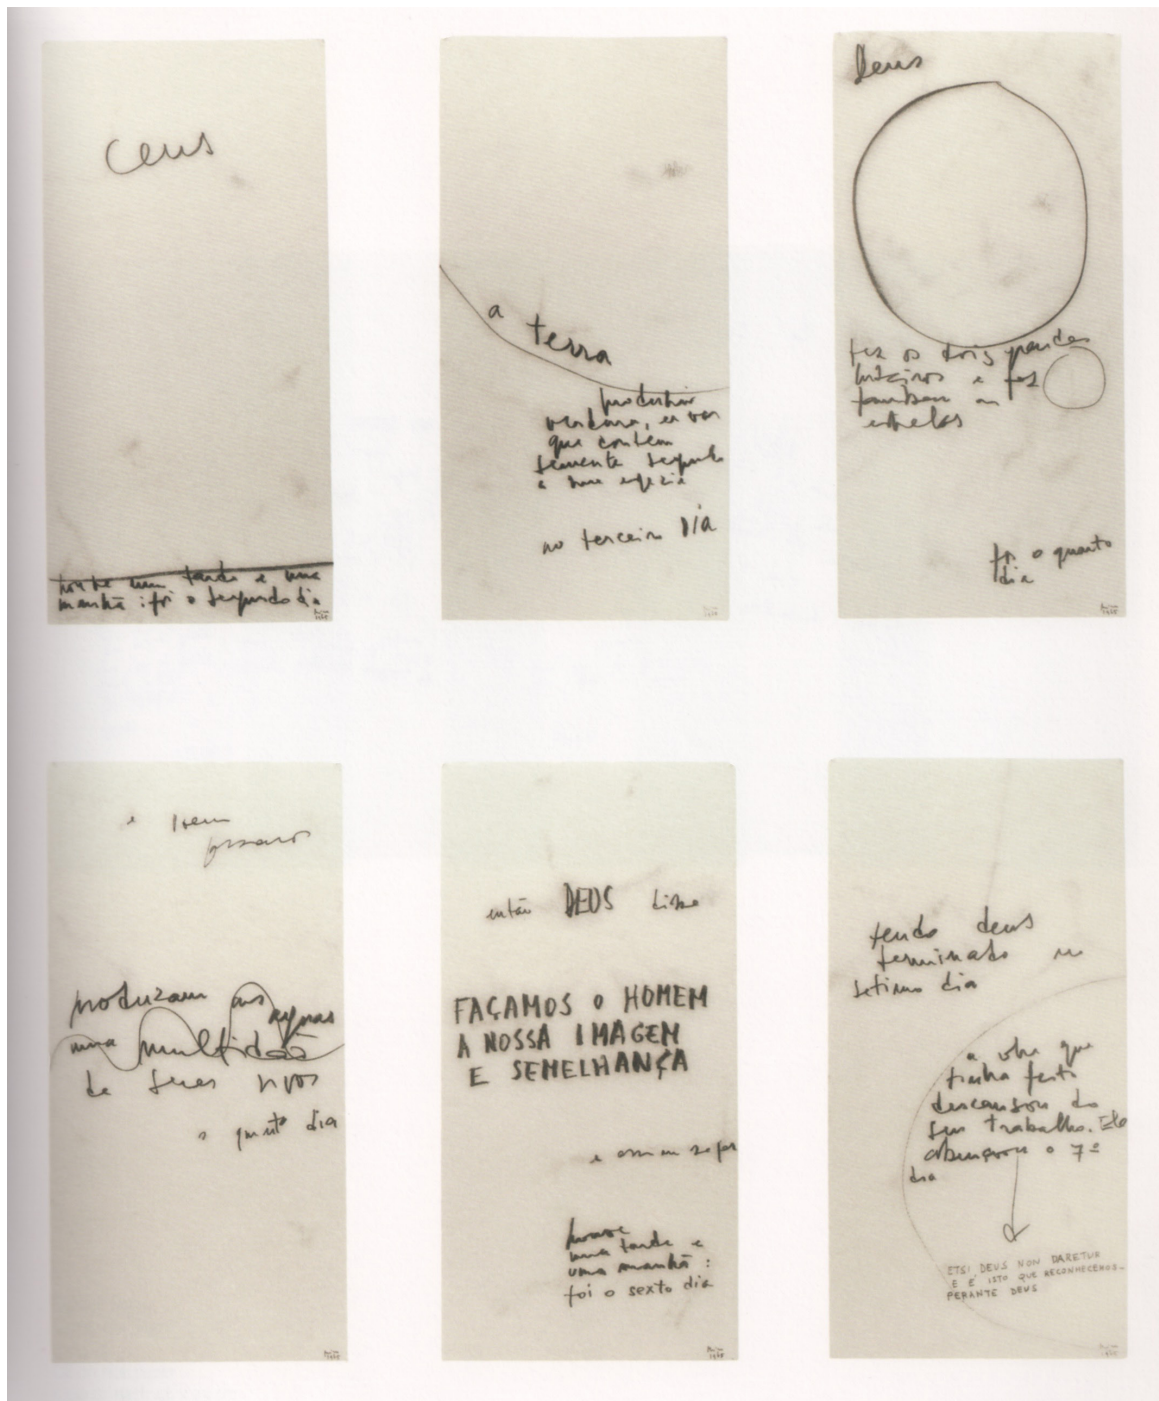 ceus
houve uma tarde e uma
manhã : foi o segundo dia
a terra
produziu
verdura, ervas
que contem
semente segundo
a sua espécie
no terceiro DIA
Deus
fez os dois grandes
luzeiros e fez
tambem as
estrelas
foi o quarto
dia
e
produzam as aguas
uma multidão
de seres vivos
o quinto dia
então DEUS disse
FAÇAMOS O HOMEM
A NOSSA IMAGEM
E SEMELHANÇA
e assim se fez
houve
uma tarde e
uma manhã :
foi o sexto dia
tendo deus
terminado no
setimo dia
a obra que
tinha feito
descansou do
seu trabalho. Ele
abençoou o 7º
dia
ETSI DEUS NON DARETUR
E É ISTO QUE RECONHECEMOS -
PERANTE DEUS